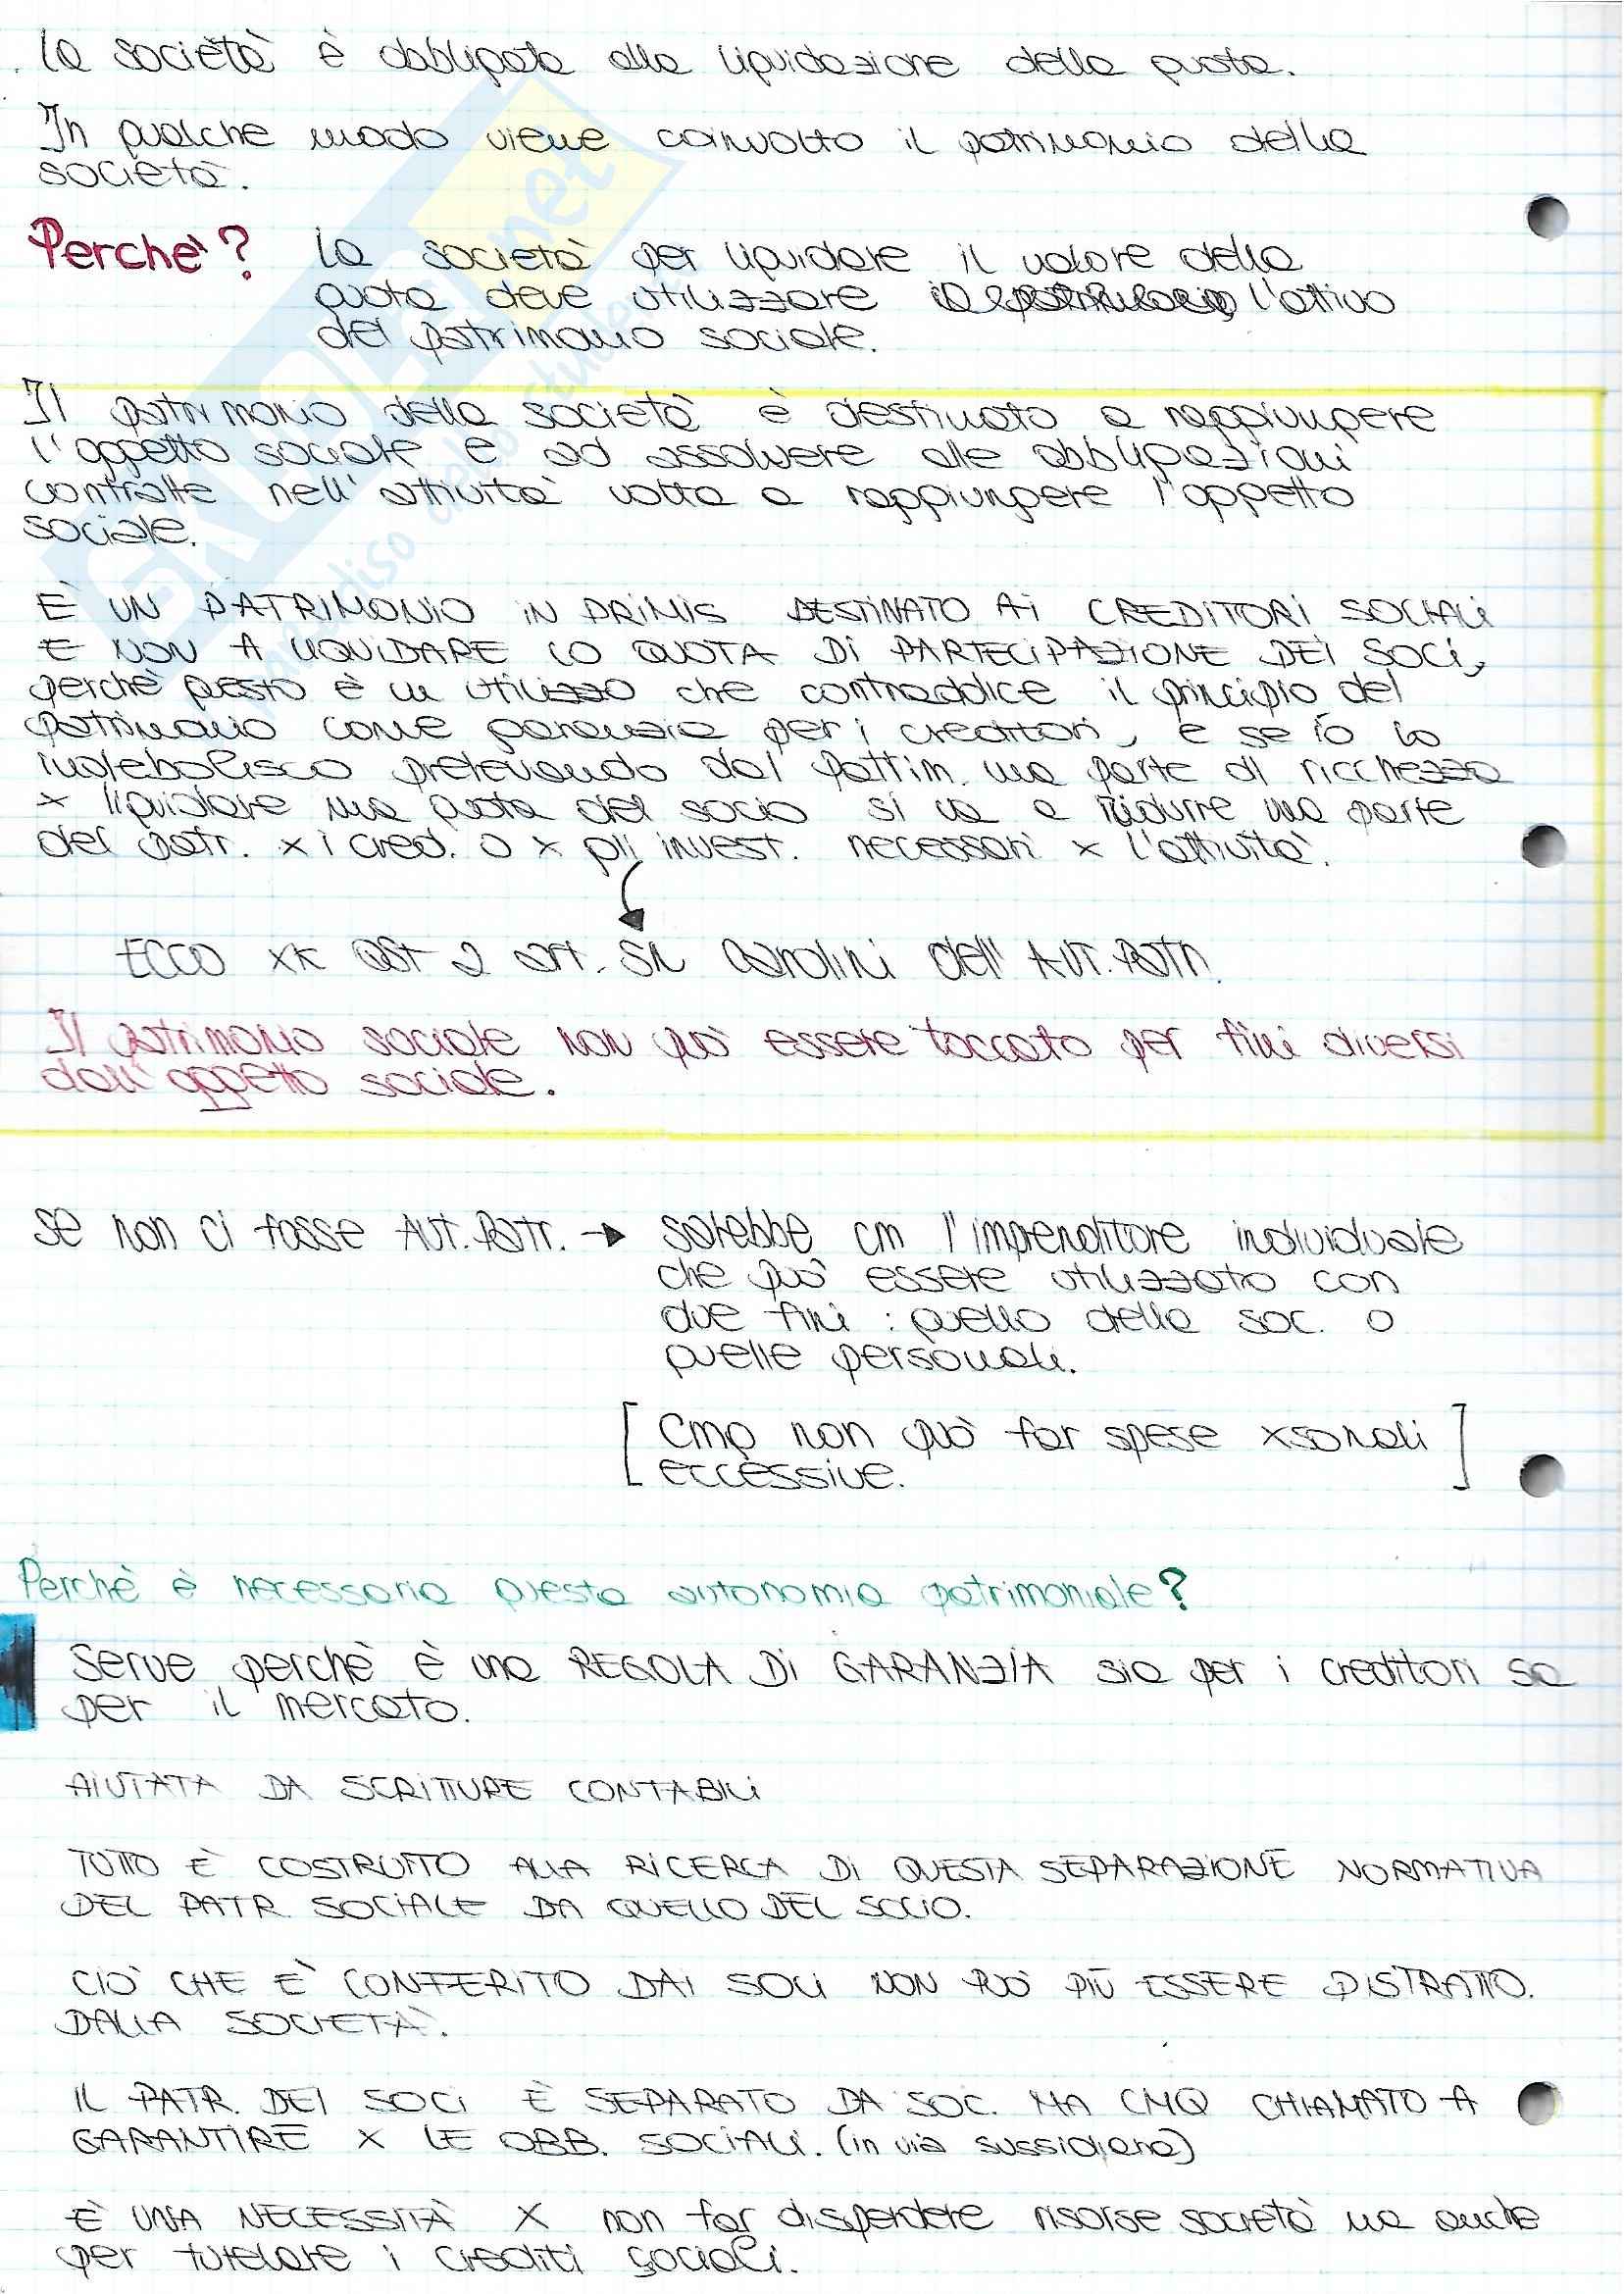 La società è obbligata alla liquidazione della quota.
In qualche modo viene coinvolto il patrimonio della
società.
Perchè? La società per liquidare il valore della
quota deve utilizzare l'attivo
del patrimonio sociale.
Il patrimonio della società è destinato a raggiungere
l'oggetto sociale e ad assolvere alle obbligazioni
contratte nell'attività volta a raggiungere l'oggetto
sociale.
È UN PATRIMONIO IN PRIMIS DESTINATO AI CREDITORI SOCIALI
E NON A LIQUIDARE LO QUOTA DI PARTECIPAZIONE DEI SOCI,
perchè questo è un utilizzo che contraddice il principio del
patrimonio come garanzia per i creditori, e se io lo
indebolisco prelevando dal patrim. una parte di ricchezza
x liquidare una quota del socio si va a ridurre una parte
del patr. x i cred. o x gli invest. necessari x l'attività.
ECCO XK QST 2 art. SN cardini dell'AUT.PATR.
Il patrimonio sociale non può essere toccato per fini diversi
dall'oggetto sociale.
Se non ci fosse AUT.PATR. → sarebbe cm l'imprenditore individuale
che può essere utilizzato con
due fini : quello della soc. o
quelle personali.
[Cmq non può far spese xsonali
eccessive.]
Perchè è necessaria questa autonomia patrimoniale?
Serve perchè è una REGOLA DI GARANZIA sia per i creditori sa
per il mercato.
AIUTATA DA SCRITTURE CONTABILI
TUTTO È COSTRUITO ALLA RICERCA DI QUESTA SEPARAZIONE NORMATIVA
DEL PATR. SOCIALE DA QUELLO DEL SOCIO.
CIÒ CHE È CONFERITO DAI SOCI NON PUÒ PIÙ ESSERE DISTRATTO.
DALLA SOCIETÀ.
IL PATR. DEI SOCI È SEPARATO DA SOC. MA CMQ CHIAMATO A
GARANTIRE X LE OBB. SOCIALI. (in via sussidiaria)
È UNA NECESSITÀ X non far disperdere risorse società ma anche
per tutelare i crediti sociali.